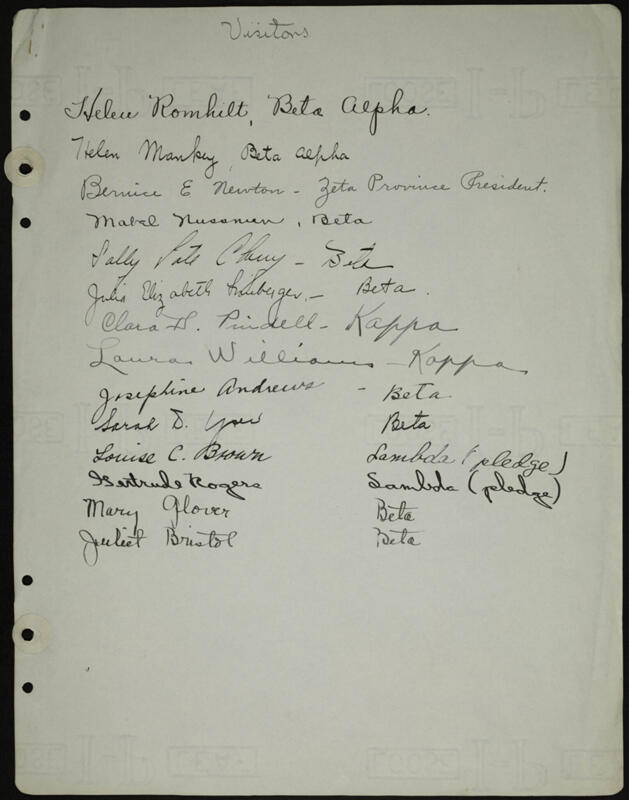 Visitors
Helen Romhilt, Beta Alpha.
Helen Mankey, Beta Alpha
Bernice E Newton - Zeta Province President.
Mabel Nussman, Beta
Sally - Beta
Julia Elizabeth - Beta.
Clara D. Pindell - Kappa
Laura Williams - Kappa
Josephine Andrews - Beta
Sarah D. Beta
Louise C. Brown Lambda (pledge)
Gertrude Rogers Lambda (pledge)
Mary Glover Beta
Juliet Bristol Beta